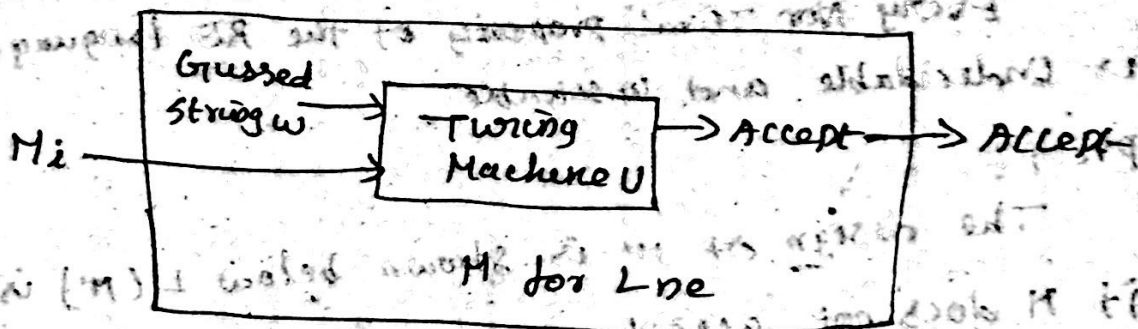 Gussed
String w
Mi
Turing
Machine U
Accept
Accept
M for Lne